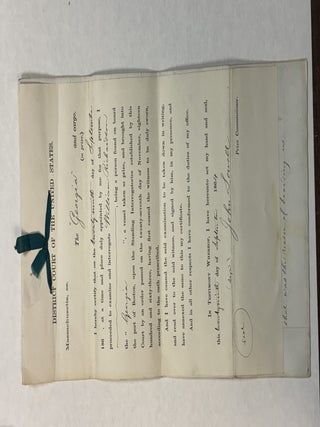 DISTRICT COURT OF THE UNITED STATES.
Massachusetts, ss.
The Georgia and cargo,
(in prize.)
I hereby certify that on the twenty-seventh day of September
186 , at a time and place duly appointed by me for that purpose, I
proceeded to examine and interrogate William Richardson
being a person found on board
the " Georgia ", a vessel taken as prize, and brought into
the port of Boston, upon the Standing Interrogatories established by this
Court by an order passed on the twenty-seventh day of November, eighteen
hundred and sixty-three, having first caused the witness to be duly sworn,
according to the oath prescribed.
And I have caused the said examination to be taken down in writing,
and read over to the said witness, and signed by him, in my presence, and
have annexed to the same this my certificate.
And in all other respects I have conformed to the duties of my office.
In Testimony Whereof, I have hereunto set my hand and seal,
this day of September 1864
John Lowell
Prize Commissioner.